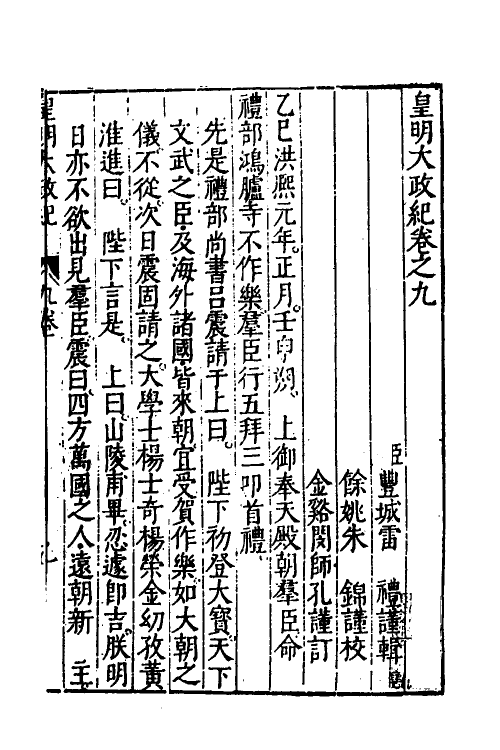 皇明大政紀卷之九
臣豐城雷　禮謹輯
餘姚朱　錦謹校
金谿閔師孔謹訂
乙巳洪熙元年。正月。壬申朔。　上御奉天殿朝羣臣。命
禮部鴻臚寺不作樂。羣臣行五拜三叩首禮。
先是禮部尚書呂震請于上曰。　陛下初登大寶。天下
文武之臣。及海外諸國。皆來朝。宜受賀作樂。如大朝之
儀。不從。次日震固請之。大學士楊士奇楊榮金幼孜黃
淮進曰。　陛下言是。　上曰。山陵甫畢。忍遽即吉。朕明
日亦不欲出見羣臣。震曰。四方萬國之人。遠朝新　主。
皇明大政紀　九卷